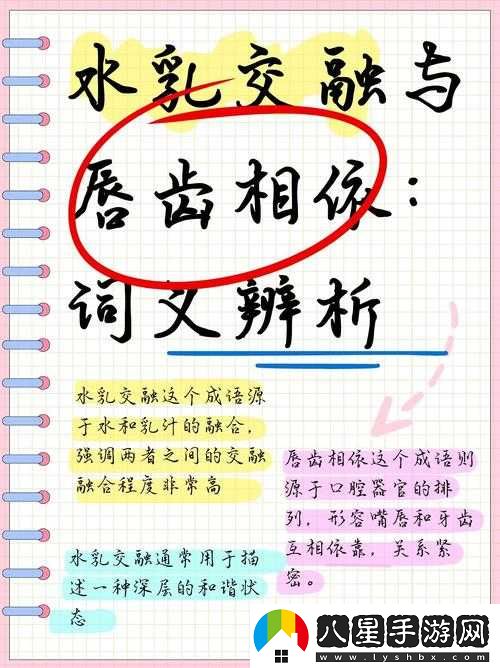 水乳交融与
唇齿相依：
词义辨析
水乳交融这个成语源
于水和乳汁的融合，
强调两者之间的交融
融合程度非常高
唇齿相依这个成语则
源于口腔器官的排
列，形容嘴唇和牙齿
互相依靠，关系紧
密。
水乳交融通常用于描
述一种深层的和谐状
态
八星手游网
www.lyshbx.com